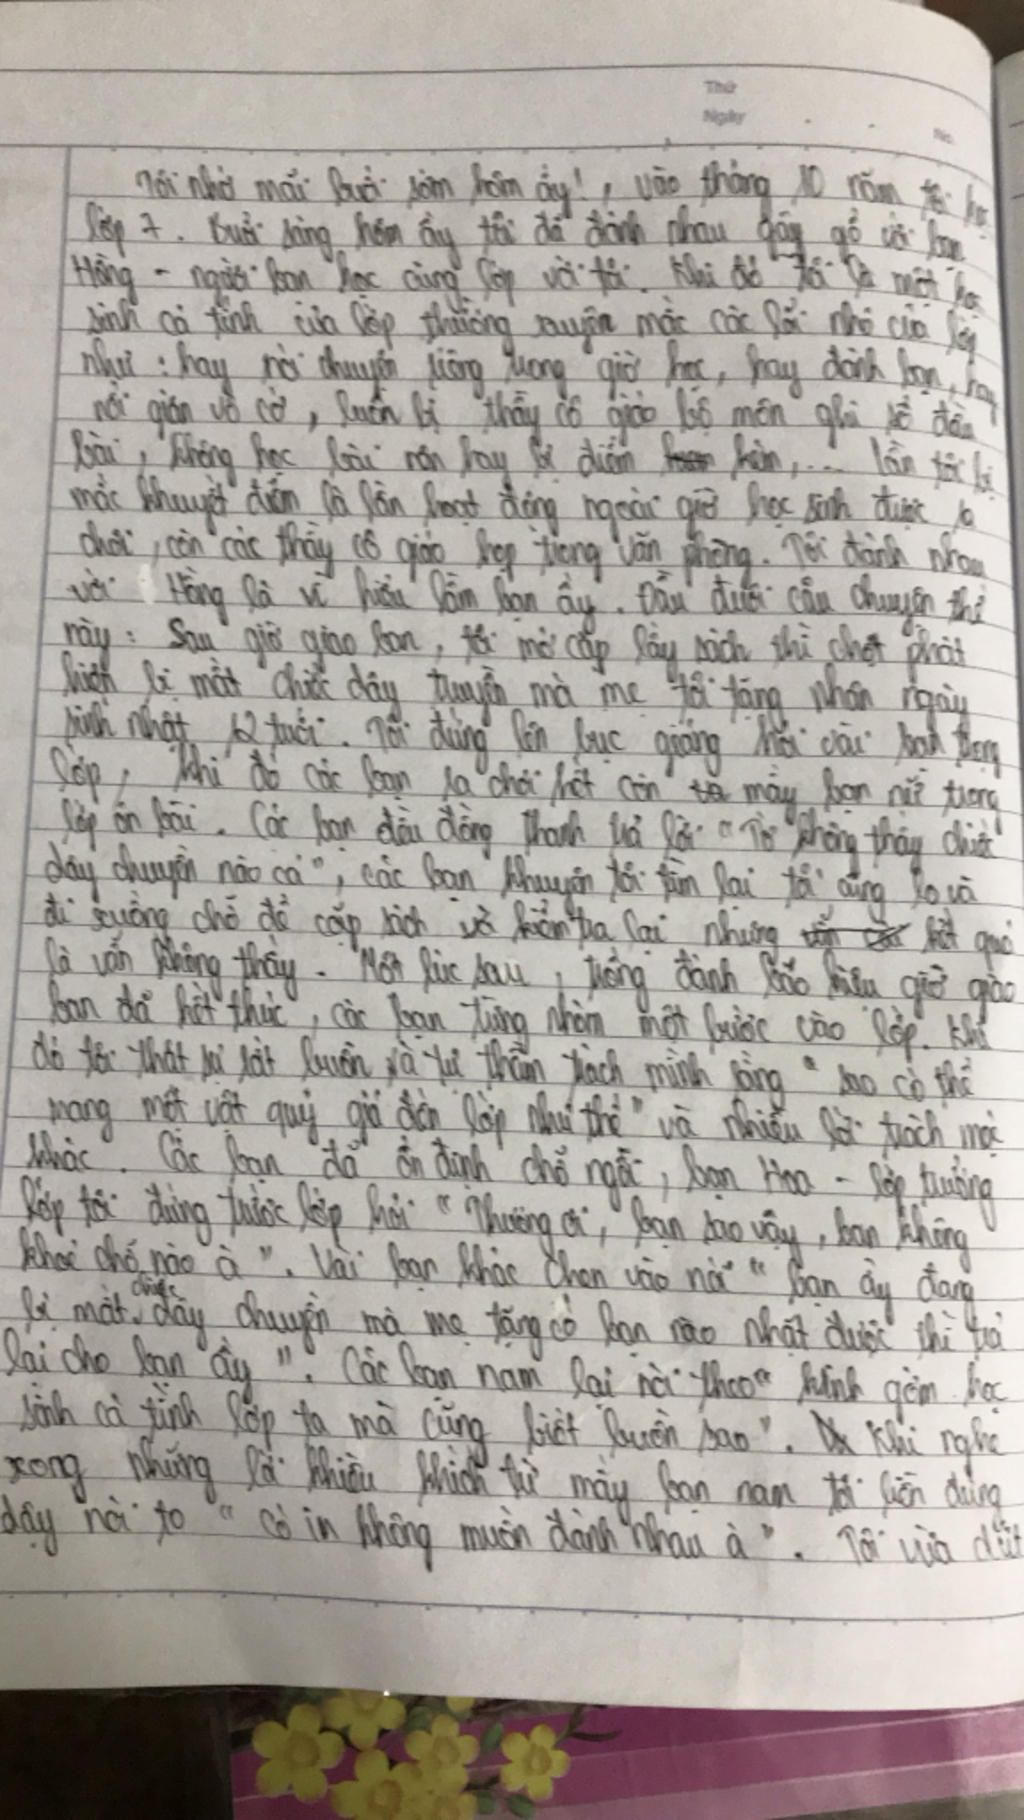 Thứ
Ngày
No.
Tôi nhớ mãi buổi sớm hôm ấy!, vào tháng 10 năm tôi học
lớp 7. Buổi sáng hôm ấy tôi đã đánh nhau gây gổ với bạn
Hồng - người bạn học cùng lớp với tôi. Khi đó tôi là một học
sinh cá tính của lớp thường xuyên mắc các lỗi nhỏ của lớp
như: hay nói chuyện riêng trong giờ học, hay đánh bạn, hay
nổi giận vô cớ, luôn bị thầy cô giáo bộ môn ghi sổ đầu
bài, không học bài nên hay bị điểm kém,... lần tôi bị
mắc khuyết điểm là lần hoạt động ngoài giờ học sinh được ra
chơi, còn các thầy cô giáo họp trong văn phòng. Tôi đánh nhau
với Hồng là vì hiểu lầm bạn ấy. Đầu đuôi câu chuyện thế
này: Sau giờ giao ban, tôi mở cặp lấy sách thì chợt phát
hiện bị mất chiếc dây truyền mà mẹ tôi tặng nhân ngày
sinh nhật 12 tuổi. Tôi đứng lên bục giảng hỏi vài bạn trong
lớp, khi đó các bạn ra chơi hết còn mấy bạn nữ trong
lớp ôn bài. Các bạn đều đồng thanh trả lời "Tớ không thấy chiếc
dây chuyền nào cả", các bạn khuyên tôi tìm lại tôi cũng lo và
đi xuống chỗ để cặp sách và kiểm tra lại nhưng kết quả
là vẫn không thấy. Một lúc sau, trống đánh báo hiệu giờ giao
ban đã kết thúc, các bạn từng nhóm một bước vào lớp. Khi
đó tôi thật sự rất buồn và tự thầm trách mình rằng "sao có thể
mang một vật quý giá đến lớp như thế" và nhiều lời trách móc
khác. Các bạn đã ổn định chỗ ngồi, bạn Hoa - lớp trưởng
lớp tôi đứng trước lớp hỏi "Thương ơi, bạn sao vậy, bạn không
khoẻ chỗ nào à". Vài bạn khác chen vào nói "bạn ấy đang
bị mất chiếc dây chuyền mà mẹ tặng có bạn nào nhặt được thì trả
lại cho bạn ấy". Các bạn nam lại nói theo "hính gớm học
sinh cá tính lớp ta mà cũng biết buồn sao". Khi nghe
xong những lời khiêu khích từ mấy bạn nam tôi liền đứng
dậy nói to "có im không muốn đánh nhau à". Tôi vừa dứt